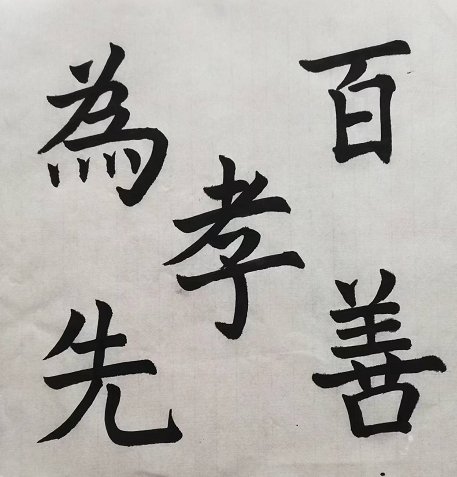 百善
孝
為先